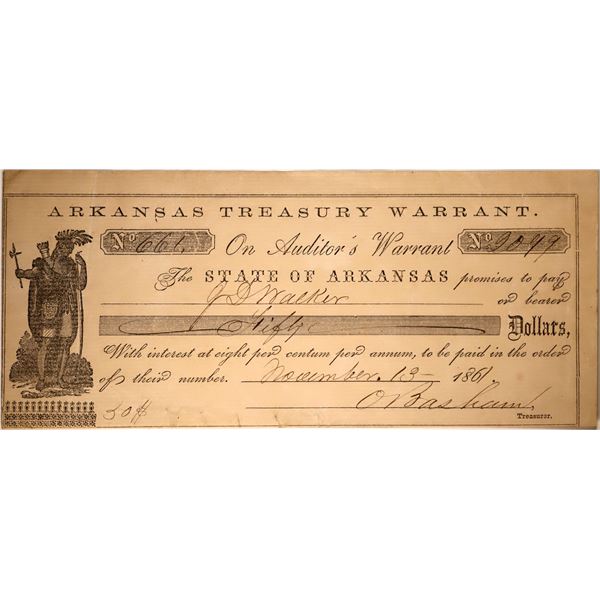 ARKANSAS TREASURY WARRANT.
No 666. On Auditor's Warrant No 2049
The STATE OF ARKANSAS promises to pay
J D Walker or bearer
Fifty Dollars,
With interest at eight per centum per annum, to be paid in the order
of their number. November. 13 - 1861
50 $ O Basham,
Treasurer.